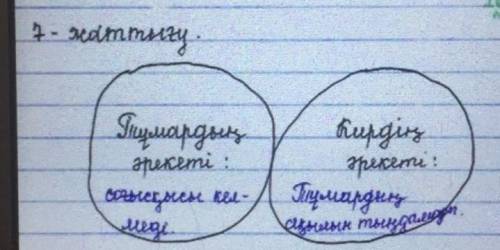 7 - жаттығу.
Тұмардың
әрекеті :
соғысқысы кел-
меді.
Кирдің
әрекеті :
Тұмардың
ақылын тыңдамады.